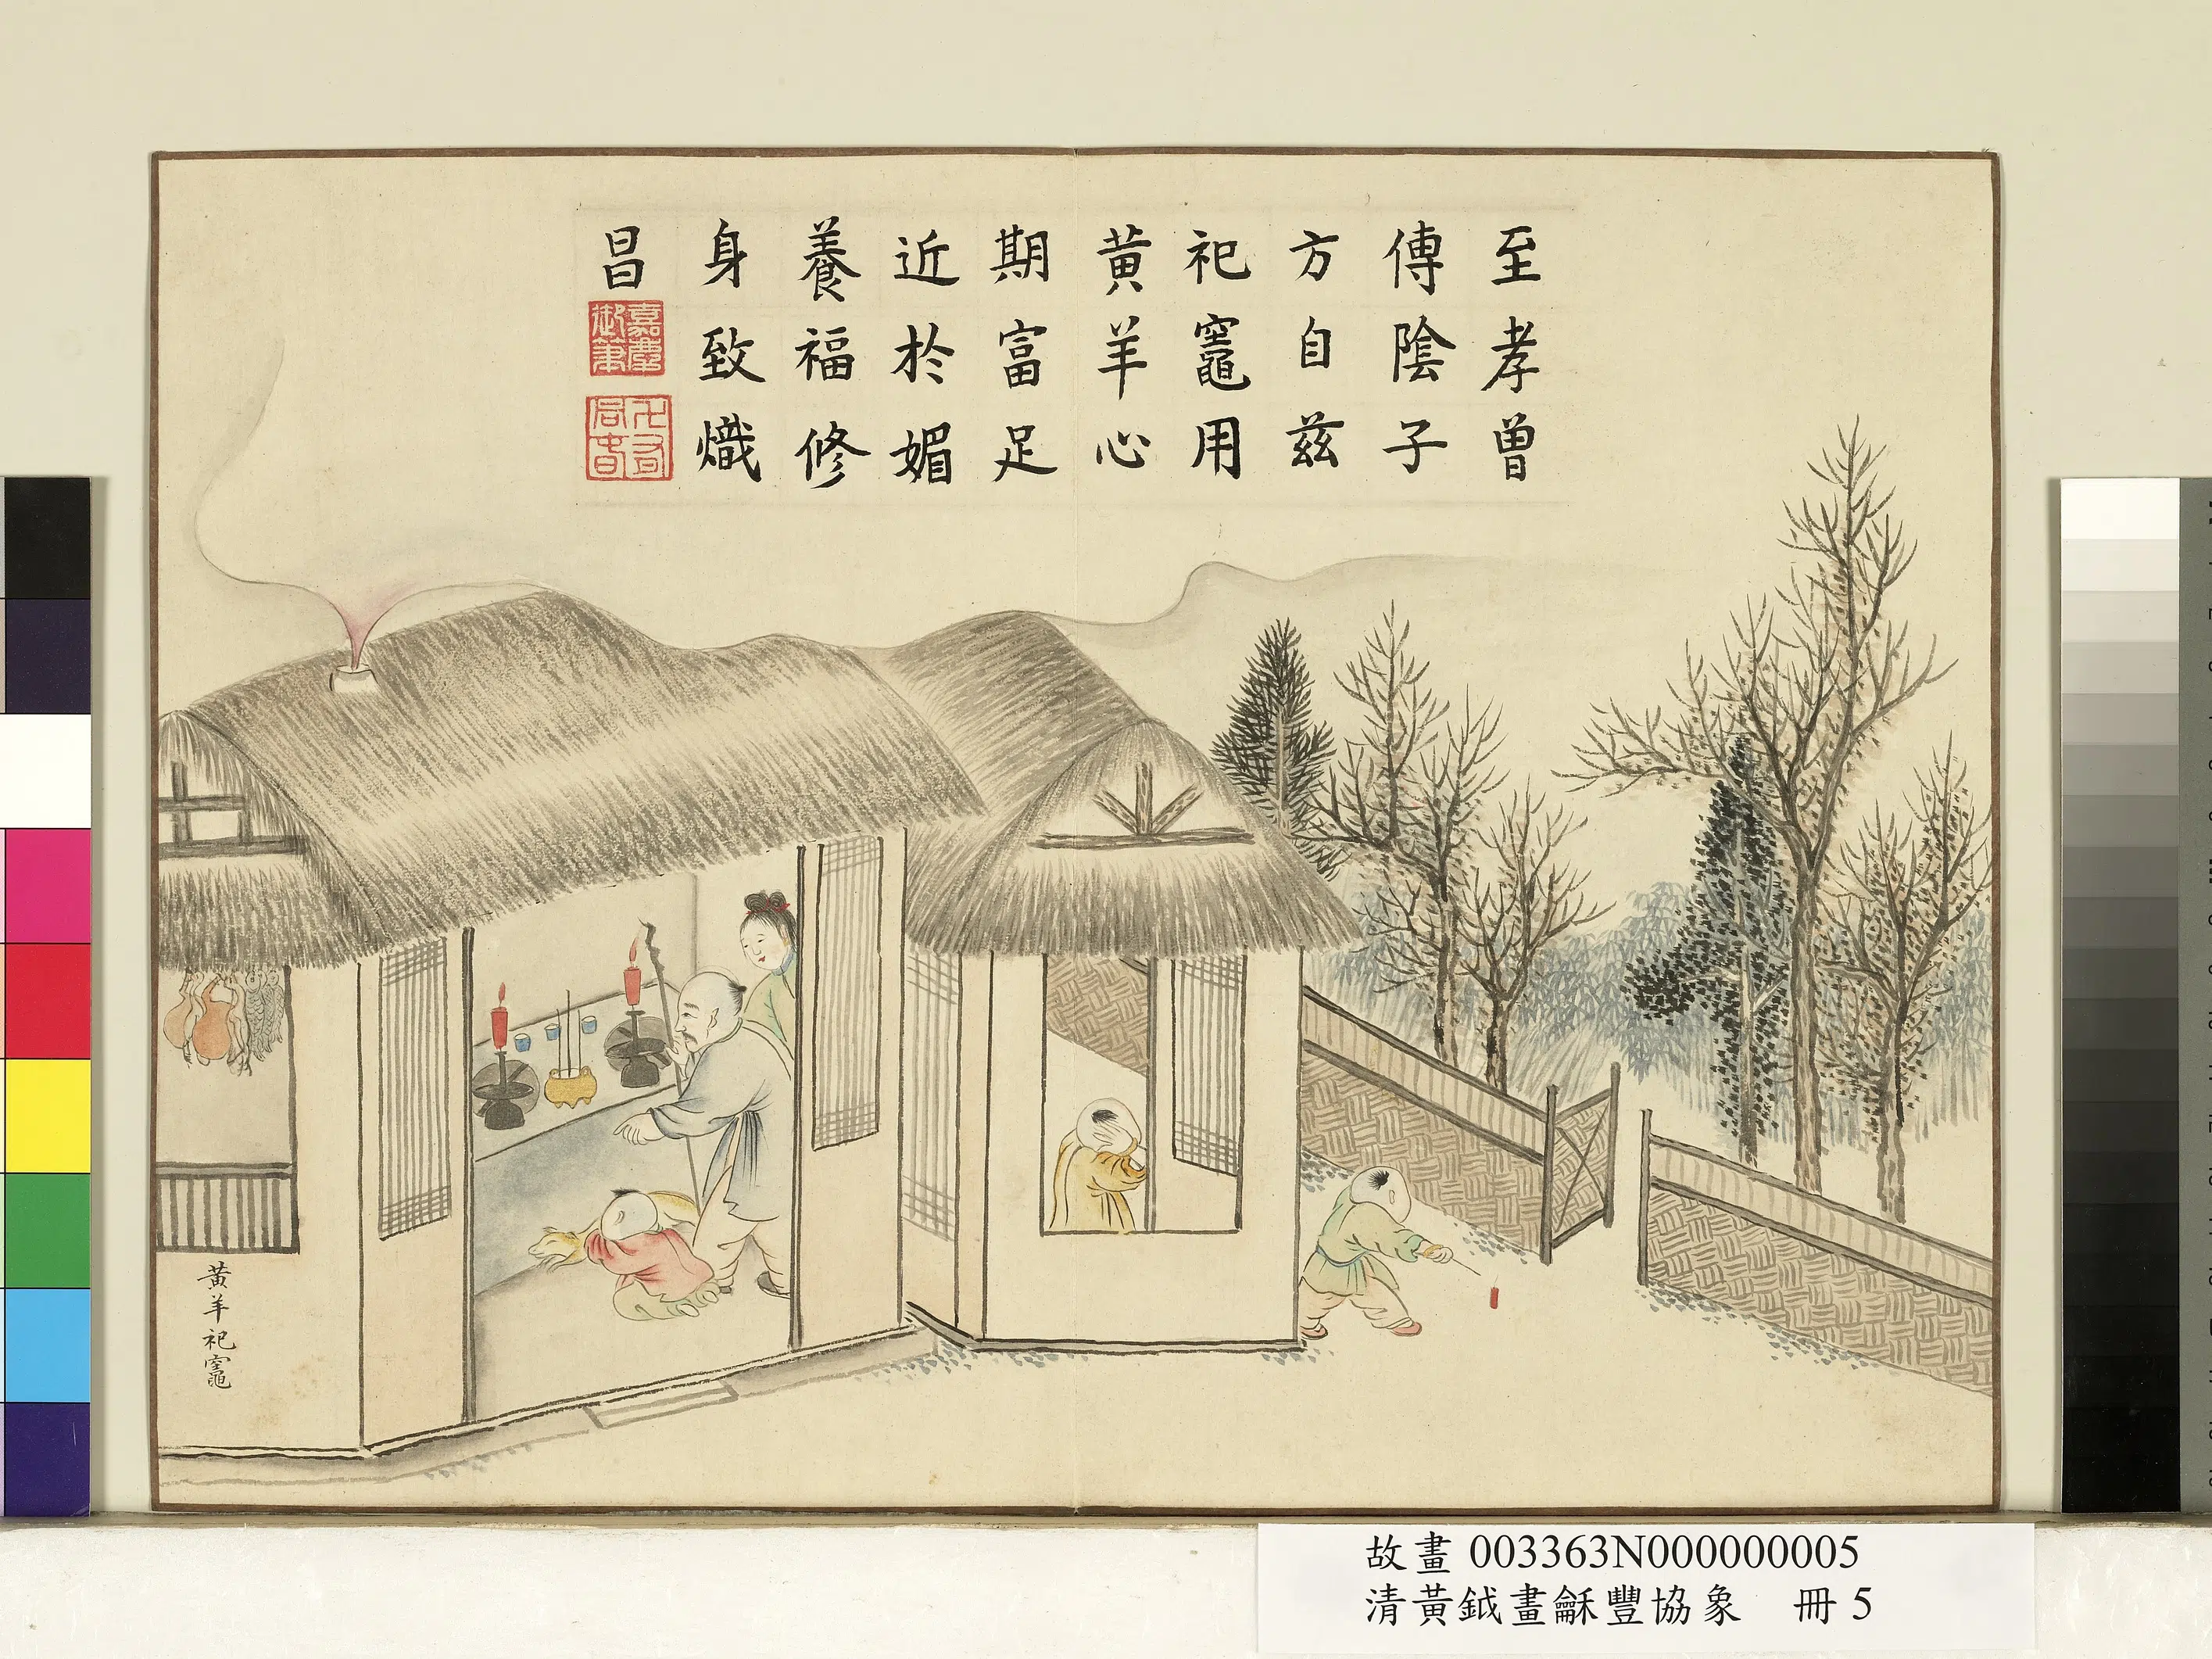 至孝曽
傳陰子
方自兹
祀竈用
黄羊心
期富足
近於媚
養福修
身致熾
昌
嘉慶
御筆
黄羊祀竈
故畫 003363N000000005
清黃鉞畫龢豐協象 冊 5